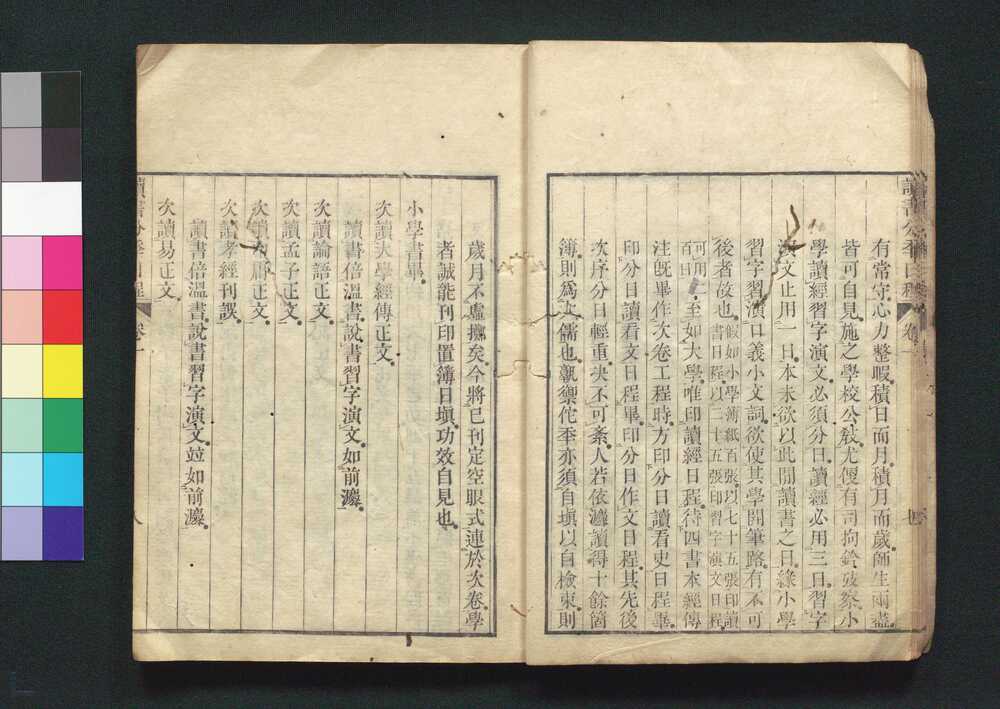 有常守心力整暇積日而月積月而歲師生兩盡
皆可自見施之學校公教尤便有司拘鈐攷察小
學讀經習字演文必須分日讀經必用三日習字
演文止用一日本未欲以此間讀書之日緣小學
習字習演口義小文詞欲使其學開筆路有不可
後者故也假如小學薄紙百張以七十五張印讀
書日程以二十五張印習字演文日程
可用二
百日至如大學唯印讀經日程待四書本經傳
注既畢作次卷工程時方印分日讀看史日程畢
印分日讀看文日程畢印分日作文日程其先後
次序分日輕重决不可紊人若依法讀得十餘箇
簿則為大儒也孰禦佗年亦須自填以自檢束則
讀書分年日程 卷一
歲月不虛擲矣今將已刊定空眼式連於次卷學
者誠能刊印置簿日填功效自見也
小學書畢
次讀大學經傳正文
讀書倍溫書說書習字演文如前灋
次讀論語正文
次讀孟子正文
次讀中庸正文
次讀孝經刊誤
讀書倍溫書說書習字演文竝如前灋
次讀易正文
讀書分年日程 卷一